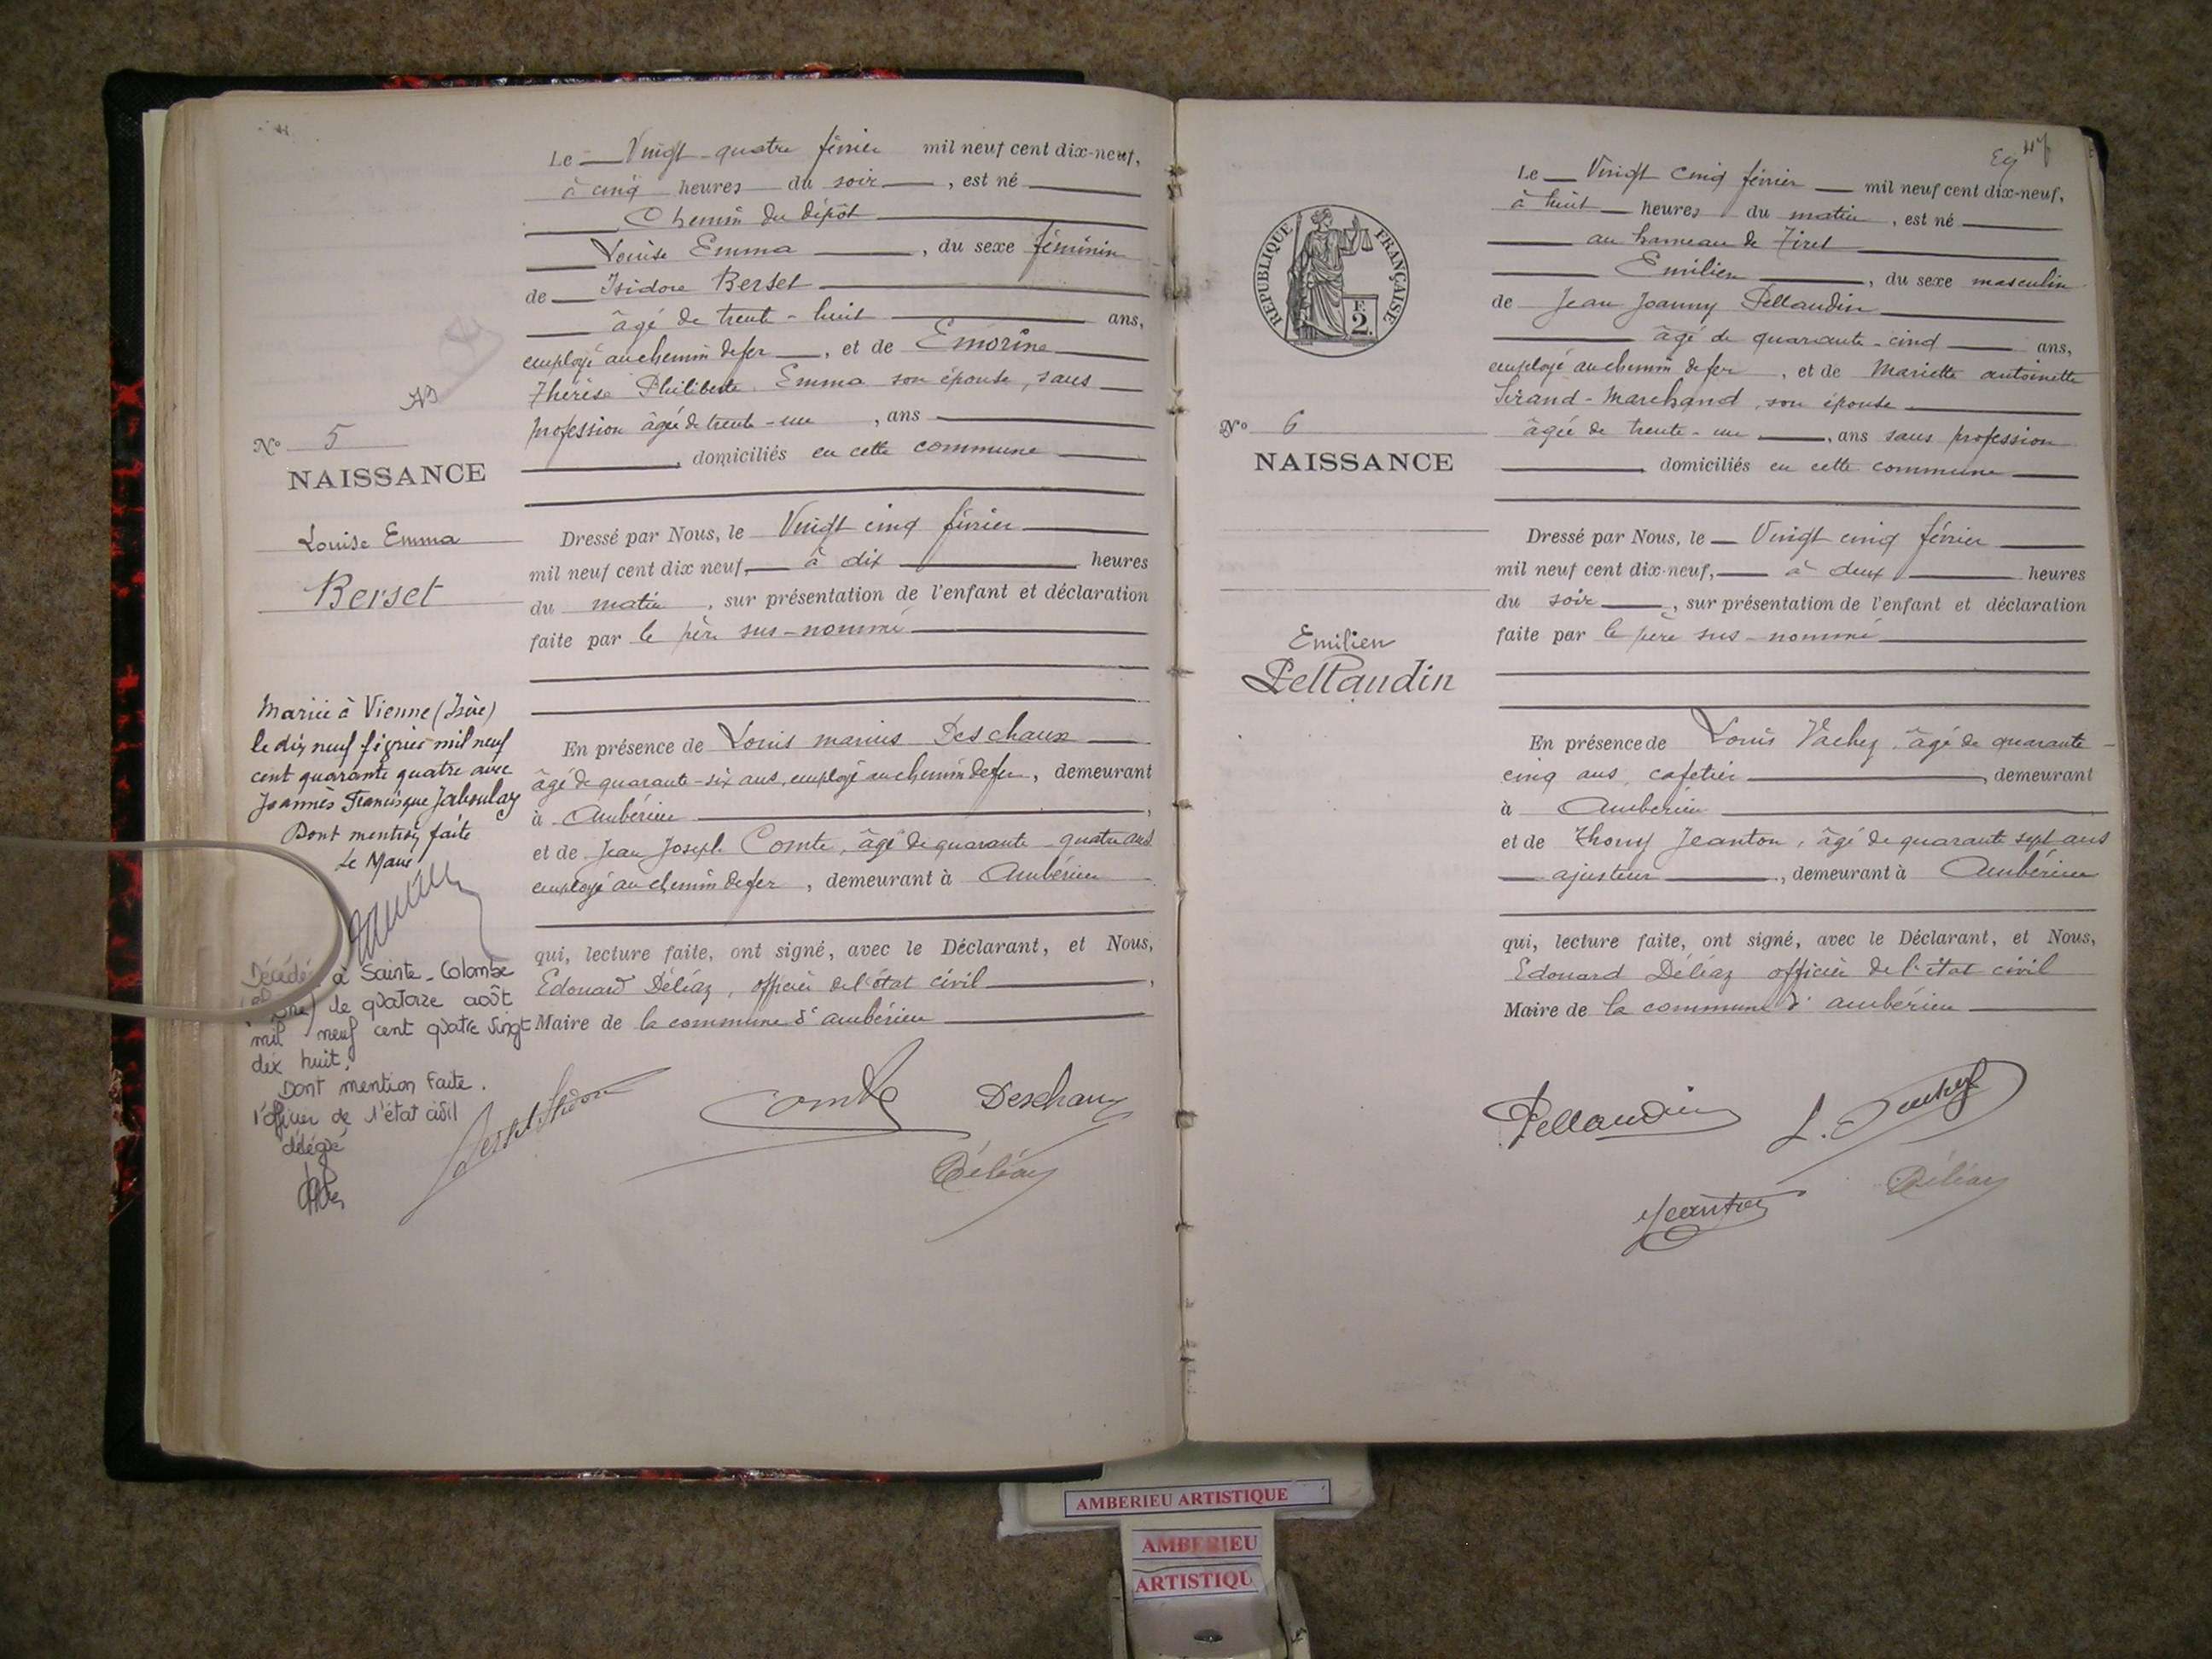 Le Vingt-quatre février mil neuf cent dix-neuf,
à cinq heures du soir, est né
Chemin du dépôt
Louise Emma, du sexe féminin
de Isidore Berset
âgé de trente-huit ans,
employé au chemin de fer, et de Emorine
Thérèse Philiberte Emma son épouse, sans
profession âgée de trente-un, ans
, domiciliés en cette commune
N° 5
NAISSANCE
Louise Emma
Berset
Dressé par Nous, le Vingt cinq février
mil neuf cent dix neuf, à dix heures
du matin, sur présentation de l'enfant et déclaration
faite par le père sus-nommé
En présence de Louis marius Deschaux
âgé de quarante-six ans, employé au chemin de fer, demeurant
à Ambérieu,
et de Jean Joseph Comte, âgé de quarante-quatre ans
employé au chemin de fer, demeurant à Ambérieu
qui, lecture faite, ont signé, avec le Déclarant, et Nous,
Edouard Déléaz, officier de l'état civil,
Maire de la commune d'ambérieu
Mariée à Vienne (Isère)
le dix neuf février mil neuf
cent quarante quatre avec
Joannès Francisque Jaboulay
Dont mention faite
Le Maire
Décédée à Sainte-Colombe
le quatorze août
mil neuf cent quatre vingt
dix huit.
Dont mention faite.
l'officier de l'état civil
délégué
Berset Isidore
Comte
Deschaux
Déléaz
Le Vingt cinq février mil neuf cent dix-neuf,
à huit heures du matin, est né
au hameau de Tiret
Emilien, du sexe masculin
de Jean Joanny Pellaudin
âgé de quarante-cinq ans,
employé au chemin de fer, et de Mariette antoinette
Sirand-Marchand, son épouse
âgée de trente-un, ans sans profession
, domiciliés en cette commune
REPUBLIQUE FRANÇAISE
F.
2.
N° 6
NAISSANCE
Emilien
Pellaudin
Dressé par Nous, le Vingt cinq février
mil neuf cent dix-neuf, à deux heures
du soir, sur présentation de l'enfant et déclaration
faite par le père sus-nommé
En présence de Louis Vachez, âgé de quarante-
cinq ans, cafetier, demeurant
à Ambérieu
et de Thony Jeanton, âgé de quarante sept ans
ajusteur, demeurant à Ambérieu
qui, lecture faite, ont signé, avec le Déclarant, et Nous,
Edouard Déléaz officier de l'état civil
Maire de la commune d'ambérieu
Pellaudin
Jeanton
Déléaz
AMBERIEU ARTISTIQUE
AMBERIEU
ARTISTIQU